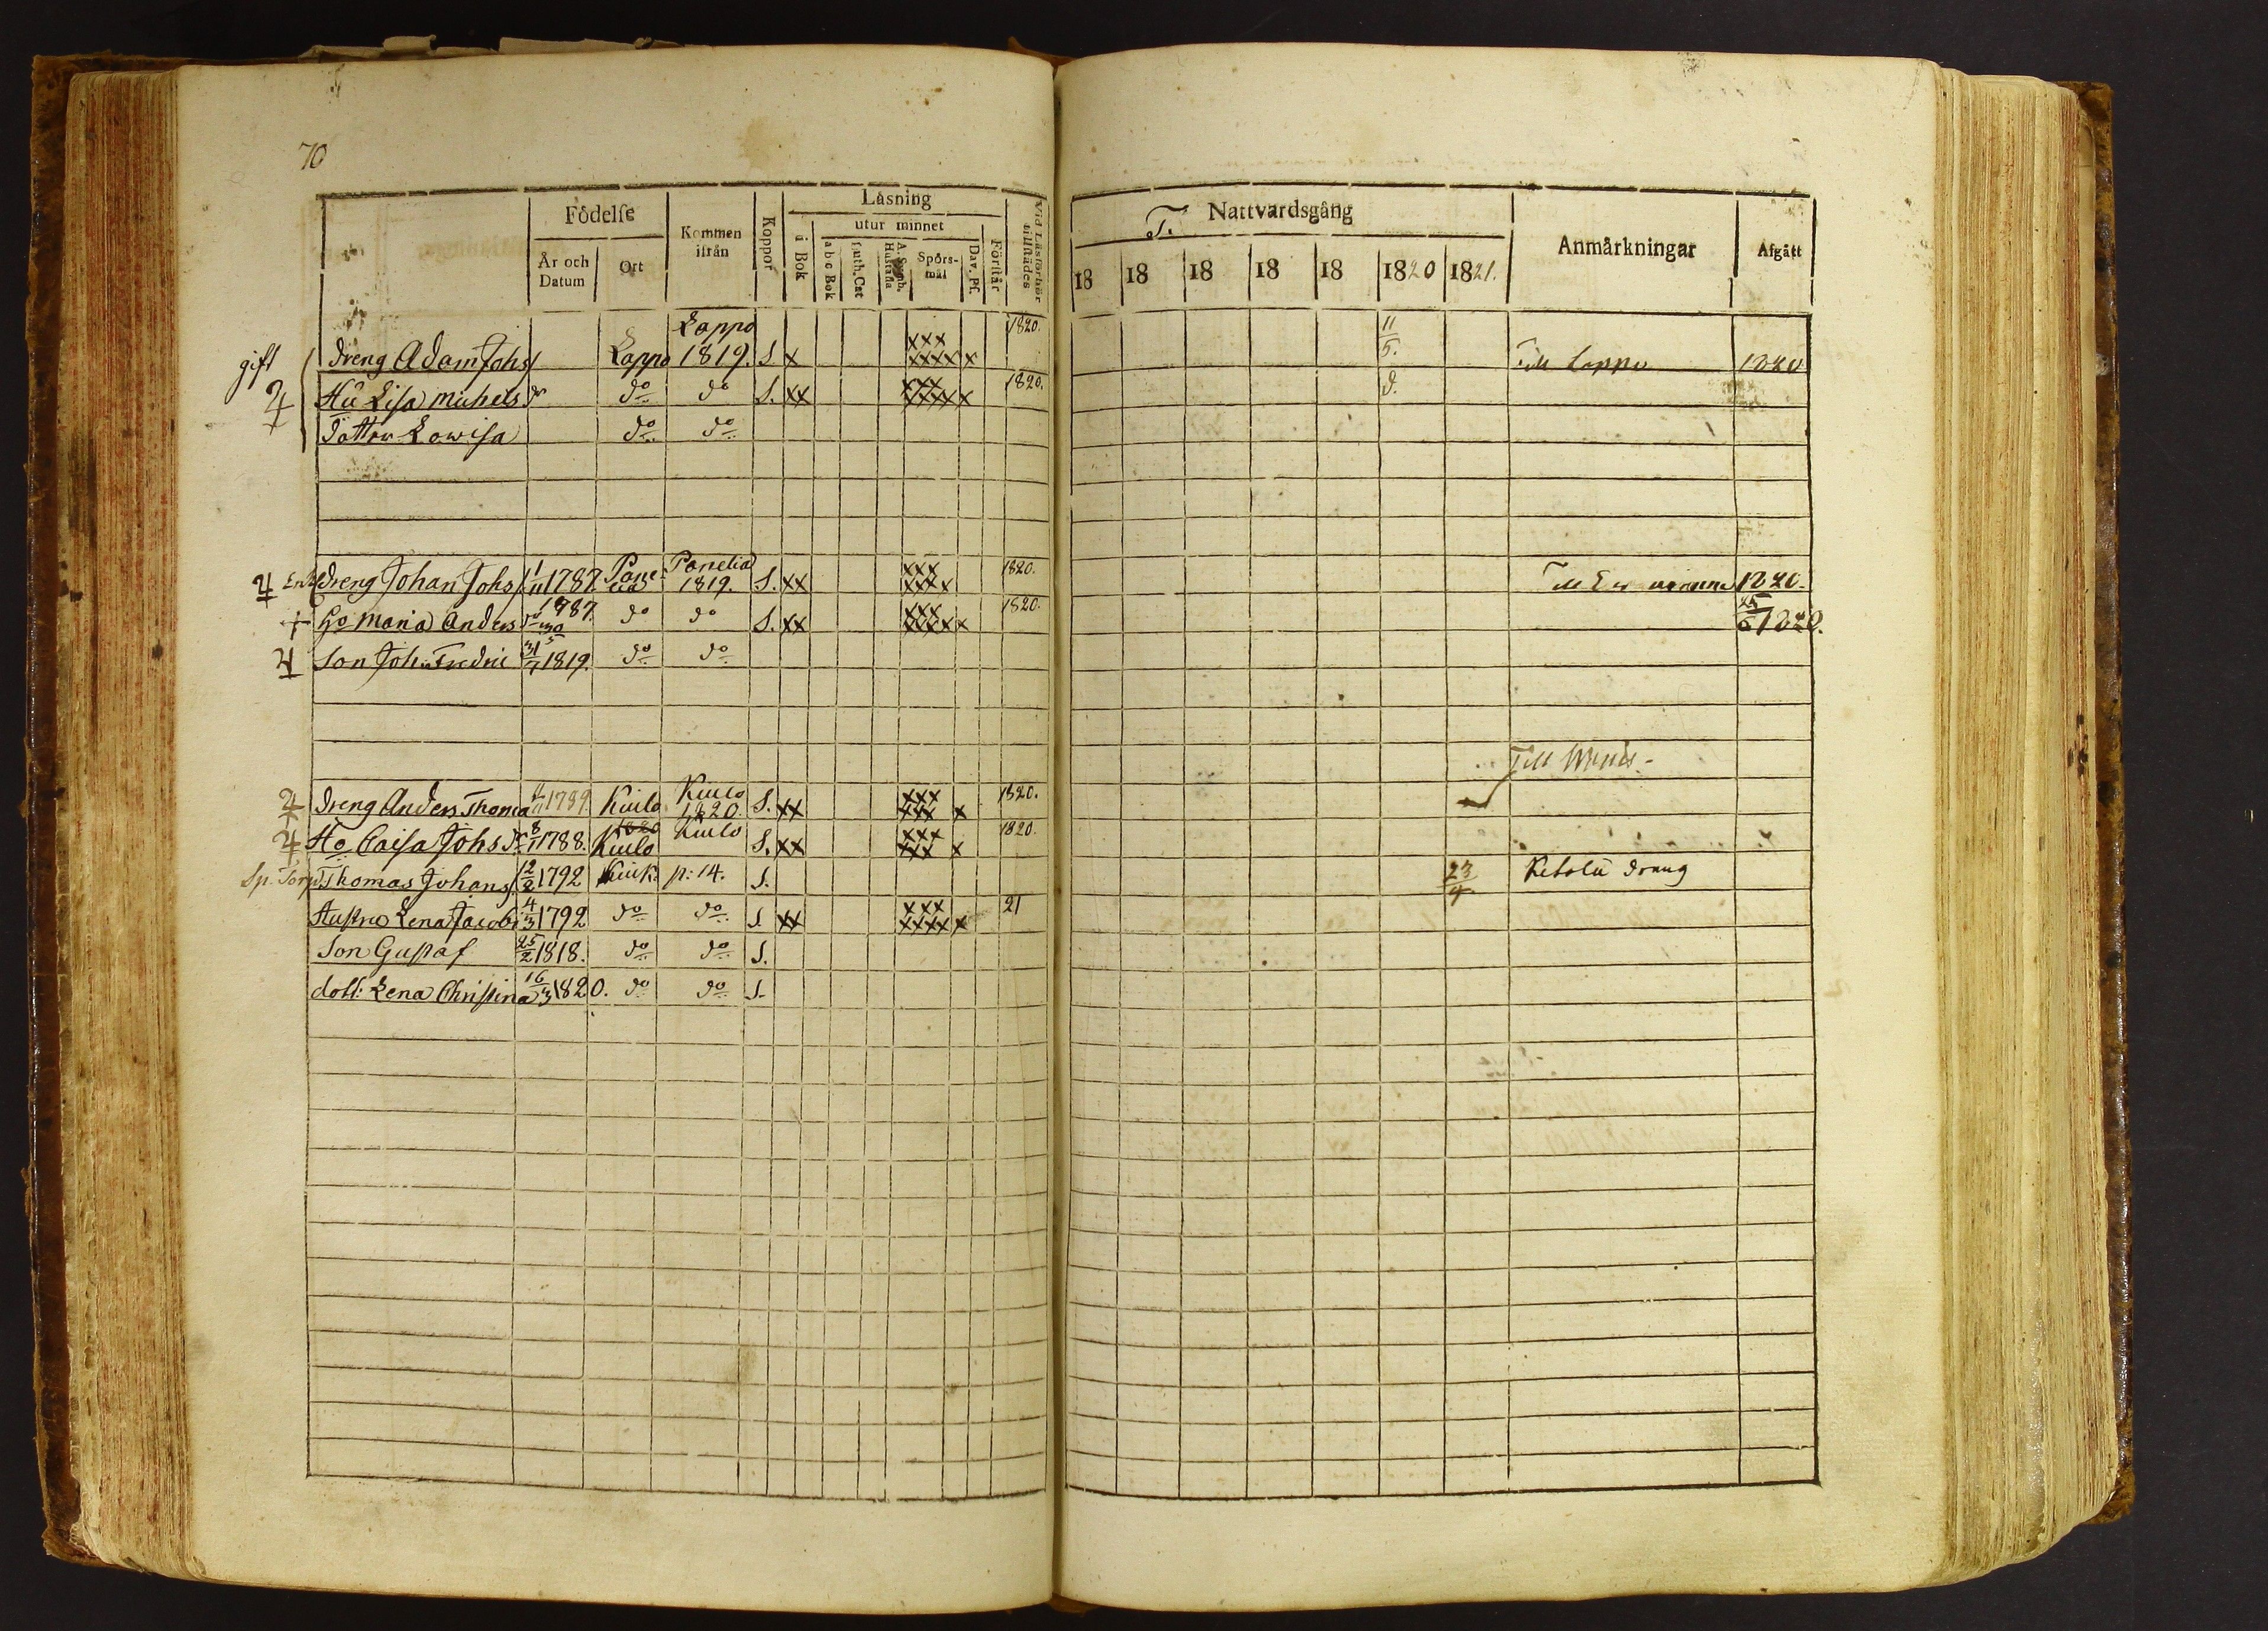 70
Födelse
Kommen ifrån
Koppor
Läsning
Vid Läsförhör tillstädes
utur minnet
År och Datum
Ort
i Bok
a b c Bok
Luth. Cat
Spörsmål
Dav. Ps.
Förstår
T. Nattvardsgång
Anmärkningar
Afgått
18 18 18 18 18 1820 1821.
gift
Dreng Adam Johs Lappo Lappo 1819. S x xxx xxxx x 1820. 11/5. Till Lappo 1820
Hu Lisa Michels dr do do S. xx xxx xxxx x 1820. d.
Dotter Lowisa do do
Enkl Dreng Johan Johs 1/11 1787. Panelia Panelia 1819. S. xx xxx xxxx 1820. Till 1820.
Ho Maria Anders dr 1787. do do S. xx xxx xxxx x 1820. 1820.
Son Joh. Fredric 31/7 1819. do do
Till
Dreng Anders Thoma 1789. Kiulo Kiulo 1820. S. xx xxx xxx x 1820.
Ho Caisa Johs dr 8/11 1788. 1820 Kiulo Kiulo S. xx xxx xxx x 1820.
Sp. Torp. Thomas Johans 12/2 1792 Kiuk. p: 14. S. 23/4 Ketola dräng
Hustru Lena Jacobs 4/3 1792 do do S. xx xxx xxxx x 21
Son Gustaf 25/2 1818. do do S.
dott: Lena Christina 16/3 1820. do do S.